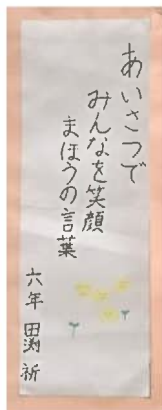 あいさつで
みんなを笑顔
まほうの言葉
六年 田渕 祈